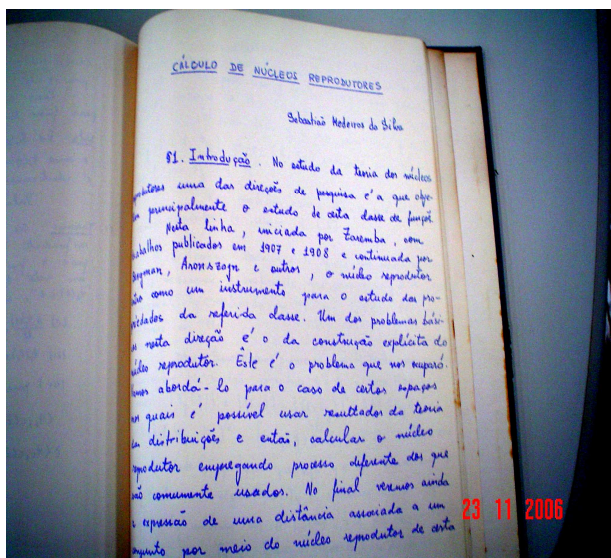 CÁLCULO DE NÚCLEOS REPRODUTORES
Sebastião Medeiros da Silva
§1. Introdução. No estudo da teoria dos núcleos
reprodutores uma das direções de pesquisa é a que obje-
principalmente o estudo de certa classe de funções.
Nesta linha, iniciada por Zaremba, com
trabalhos publicados em 1907 e 1908 e continuada por
Bergman, Aronszajn e outros, o núcleo reprodutor
como um instrumento para o estudo das pro-
priedades da referida classe. Um dos problemas bási-
nesta direção é o da construção explícita do
núcleo reprodutor. Êste é o problema que nos ocupará.
Vamos abordá-lo para o caso de certos espaços
nos quais é possível usar resultados da teoria
distribuições e então, calcular o núcleo
reprodutor empregando processo diferente dos que
são comumente usados. No final veremos ainda
a expressão de uma distância associada a um
conjunto por meio do núcleo reprodutor de certa
23 11 2006